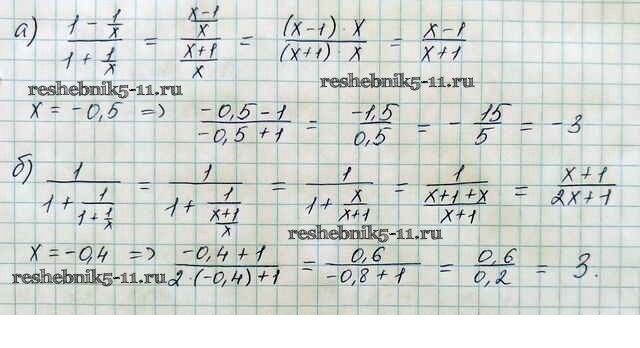 а) (1 - 1/x)/(1 + 1/x) = ((x-1)/x)/((x+1)/x) = ((x-1)·x)/((x+1)·x) = (x-1)/(x+1)
reshebnik5-11.ru reshebnik5-11.ru
x = -0,5 => (-0,5-1)/(-0,5+1) = (-1,5)/(0,5) = - 15/5 = -3
б) 1/(1 + 1/(1 + 1/x)) = 1/(1 + 1/((x+1)/x)) = 1/(1 + x/(x+1)) = 1/((x+1+x)/(x+1)) = (x+1)/(2x+1)
reshebnik5-11.ru
x = -0,4 => (-0,4+1)/(2·(-0,4)+1) = (0,6)/(-0,8+1) = (0,6)/(0,2) = 3.
reshebnik5-11.ru